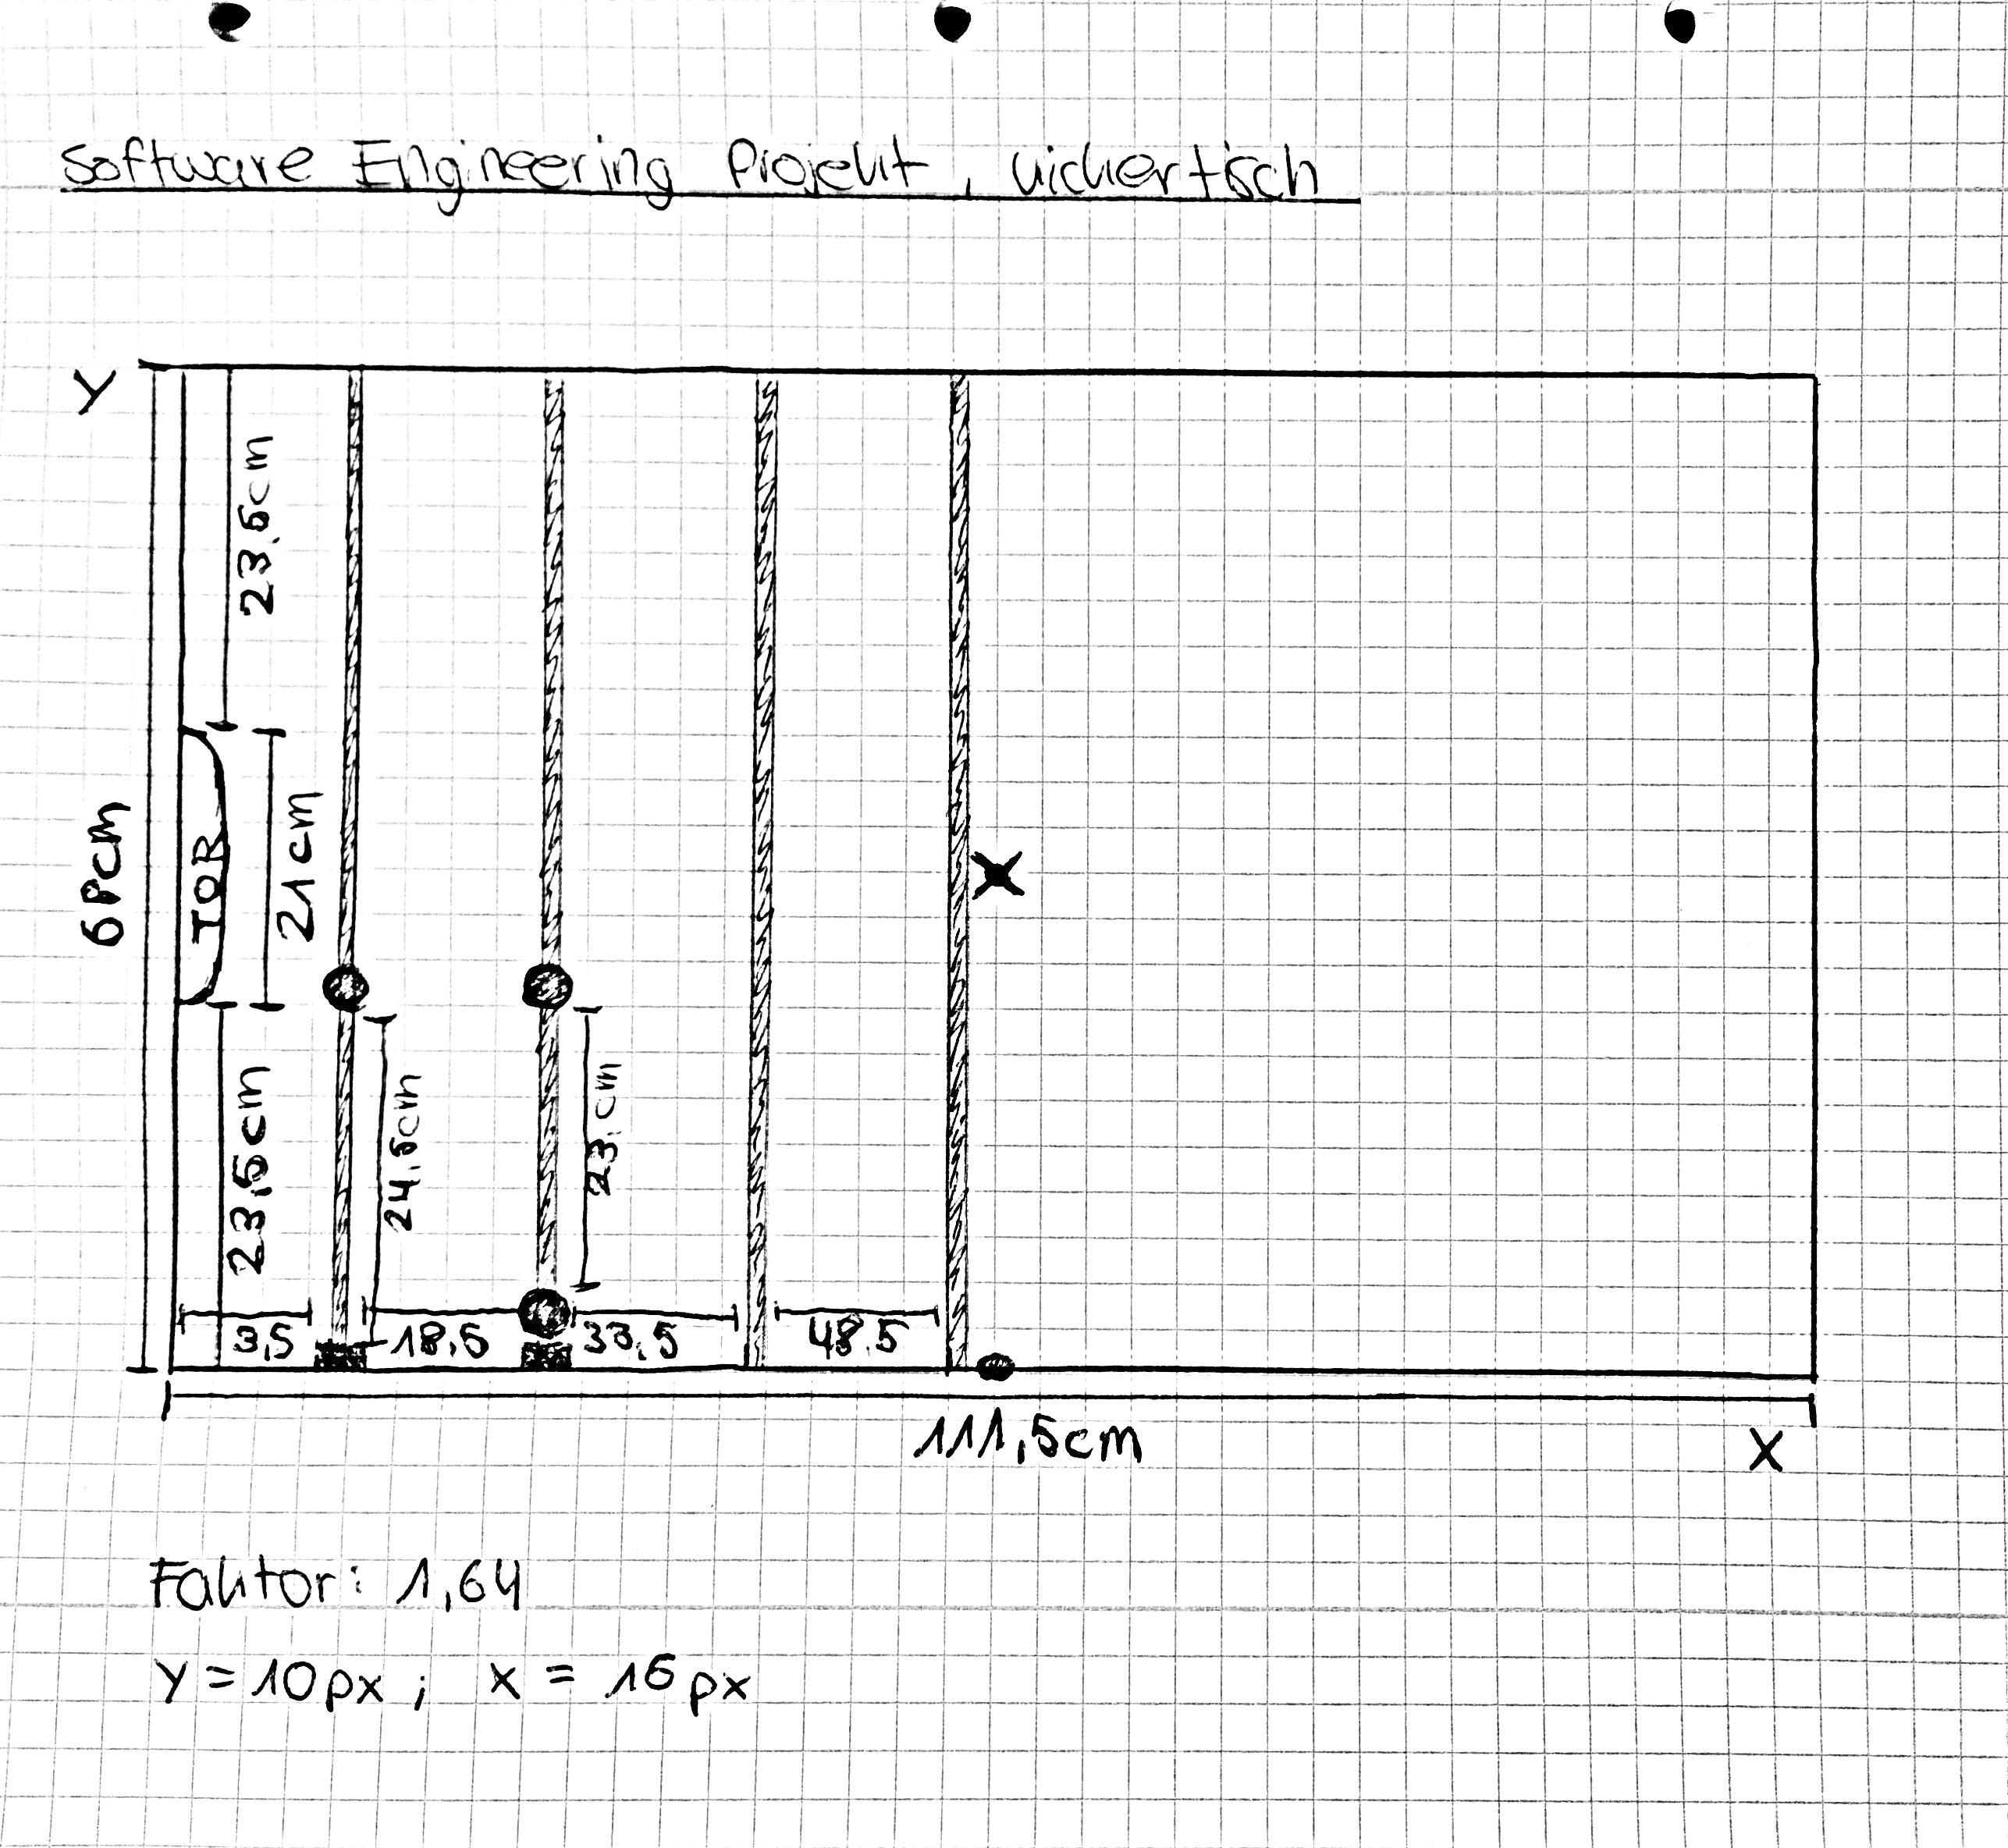 Software Engineering Projekt, Kickertisch
Y
23,5cm
68cm
TOR
21cm
23,5cm
24,5cm
23cm
3,5
18,5
33,5
48,5
111,5cm
X
Faktor: 1,64
Y = 10px ; X = 16px